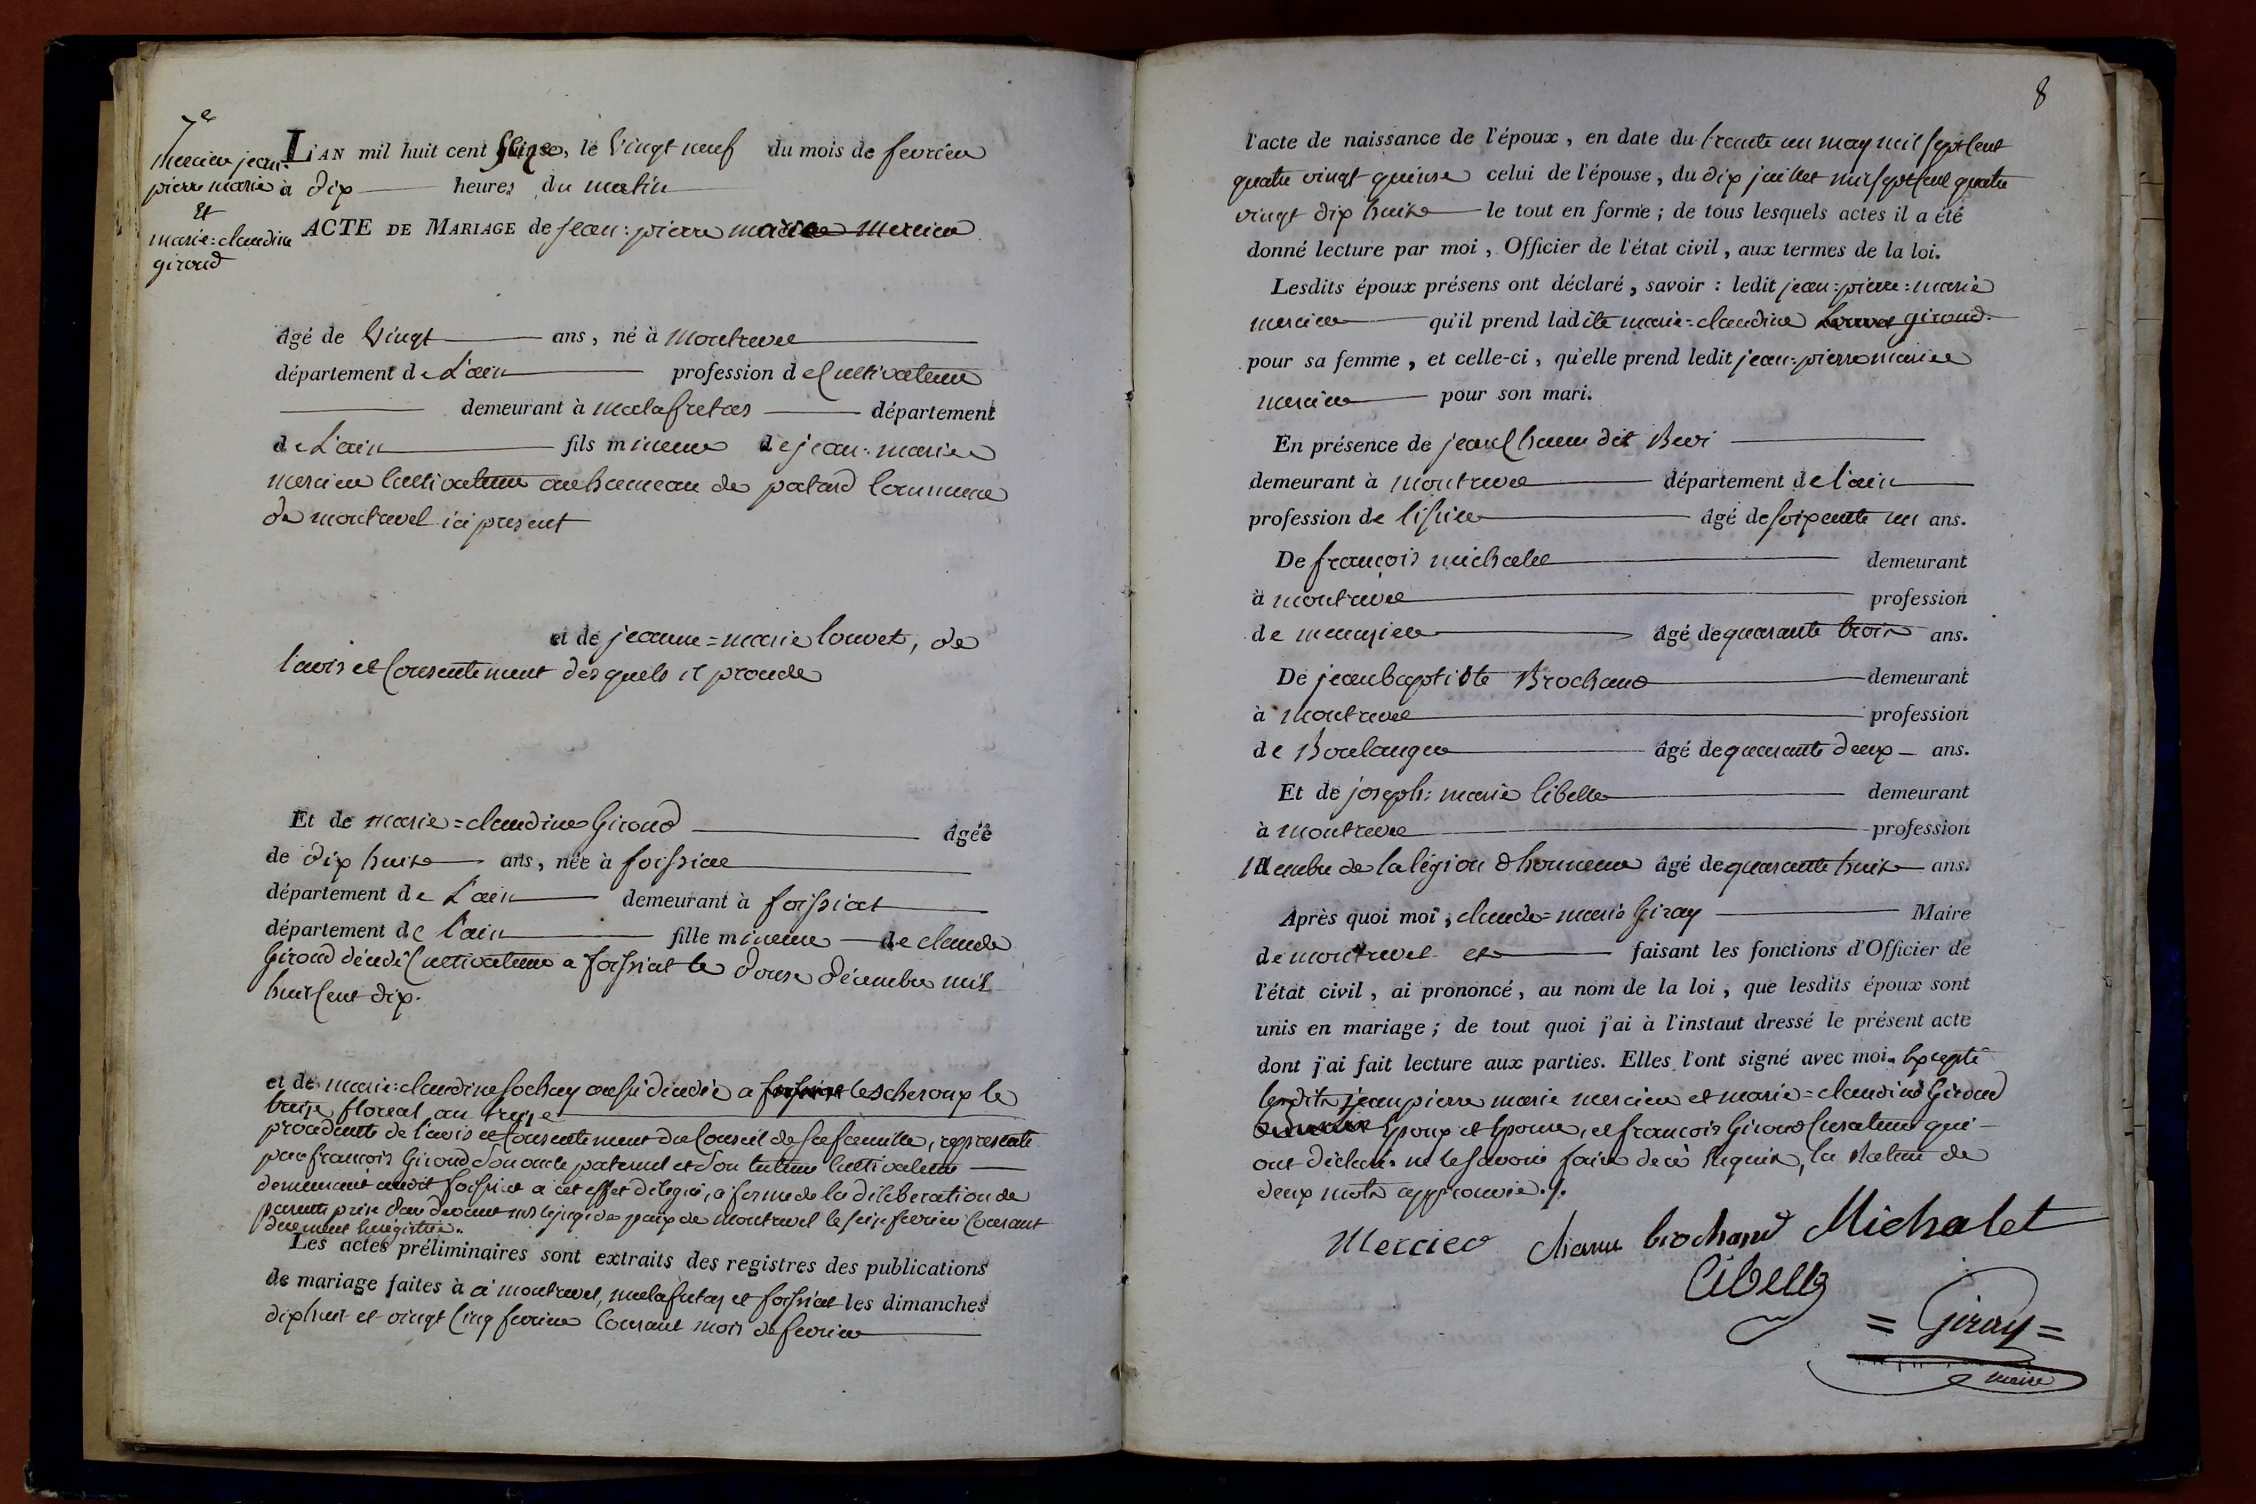 7e
mercier jean-
pierre marie
Et
marie=claudine
giroud
L'AN mil huit cent seize, le vingt neuf du mois de fevrier
à dix heures du matin
ACTE DE MARIAGE de jean=pierre marie mercier
âgé de vingt ans, né à montrevel
département de L'ain profession de Cultivateur
demeurant à malafretas département
de L'ain fils mineur de jean=marie
mercier Cultivateur au hameau de Commune
de montrevel ici present
et de jeanne=marie louvet, de
l'avis et Consentement desquels il procede
Et de marie=claudine Giroud âgée
de dix huit ans, née à foissiat
département de L'ain demeurant à foissiat
département de l'ain fille mineure de claude
Giroud décédé Cultivateur a foissiat le douze décembre mil
huit Cent dix.
et de marie=claudine Sochay aussi décédée a lescheroux le
treize floreal an treize
procedente de l'avis et Consentement du Conseil de sa famille, representé
par francois Giroud son oncle paternel et son tuteur Cultivateur
demeurant audit foissiat a cet effet délégué, a forme de la déliberation de
parents prise par devant mr le juge de paix de montrevel le seize fevrier Courant
duement Enregistrée.
Les actes préliminaires sont extraits des registres des publications
de mariage faites à à montrevel, malafretas et foissiat les dimanches
dix huit et vingt Cinq fevrier Courant mois de fevrier
8
l'acte de naissance de l'époux, en date du trente un may mil sept Cent
quatre vingt quinse celui de l'épouse, du dix juillet mil sept Cent quatre
vingt dix huit le tout en forme; de tous lesquels actes il a été
donné lecture par moi, Officier de l'état civil, aux termes de la loi.
Lesdits époux présens ont déclaré, savoir: ledit jean=pierre=marie
mercier qu'il prend ladite marie=claudine giroud
pour sa femme, et celle-ci, qu'elle prend ledit jean=pierre marie
mercier pour son mari.
En présence de jean Chanu dit
demeurant à montrevel département de l'ain
profession de âgé de soixante un ans.
De françois michalet demeurant
à montrevel profession
de menuisier âgé de quarante trois ans.
De jean baptiste Brochand demeurant
à montrevel profession
de Boulanger âgé de quarante deux ans.
Et de joseph=marie Cibelle demeurant
à montrevel profession
Membre de la légion d'honneur âgé de quarante huit ans.
Après quoi moi, claude=marie Giray Maire
de montrevel et faisant les fonctions d'Officier de
l'état civil, ai prononcé, au nom de la loi, que lesdits époux sont
unis en mariage; de tout quoi j'ai à l'instant dressé le présent acte
dont j'ai fait lecture aux parties. Elles l'ont signé avec moi. Excepté
lesdits jean pierre marie mercier et marie=claudine Giroud
Epoux et Epouse, et francois Giroud Curateur qui
ont déclaré ne le savoir faire de ce Requis, la Rature de
deux mots approuvée./.
Mercier Chanu brochand Michalet
Cibelle
= Giray =
maire